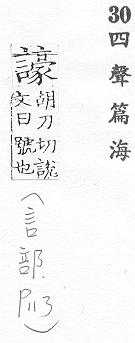 30 四聲篇海
譹
胡刀切說
文曰號也
(言部. P113)